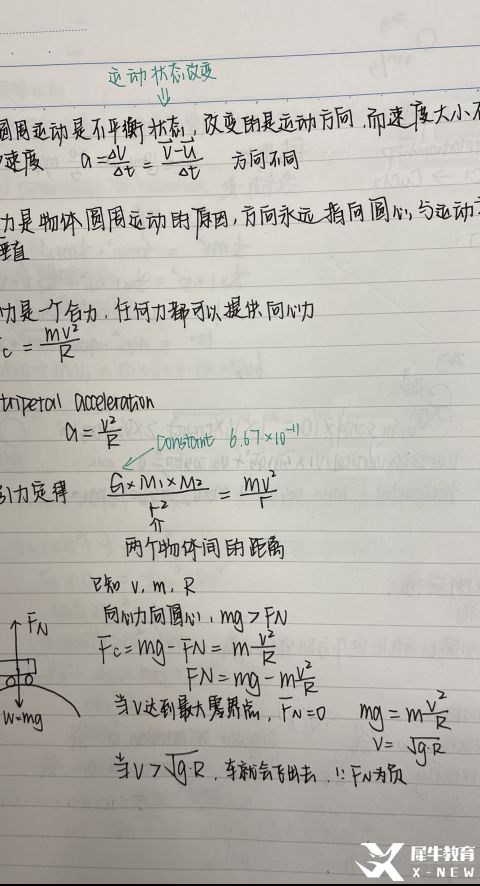 运动状态改变
⇓
圆周运动是不平衡状态，改变的是运动方向，而速度大小不
速度 a = ΔV/Δt = (V-U)/Δt 方向不同
力是物体圆周运动的原因，方向永远指向圆心，与运动方
垂直
力是一个合力，任何力都可以提供向心力
c = mv²/R
tripetal acceleration
a = v²/R
constant 6.67×10⁻¹¹
引力定得 G×M₁×M₂/r² = mv²/r
⇑
两个物体间的距离
已知 v, m, R
向心力向圆心，mg > FN
Fc = mg - FN = m v²/R
FN = mg - m v²/R
FN
W=mg
当V达到最大零界点，FN=0 mg = m v²/R
v = √g·R
当V>√g·R，车就会飞出去，∵FN为负
犀牛教育
X-NEW